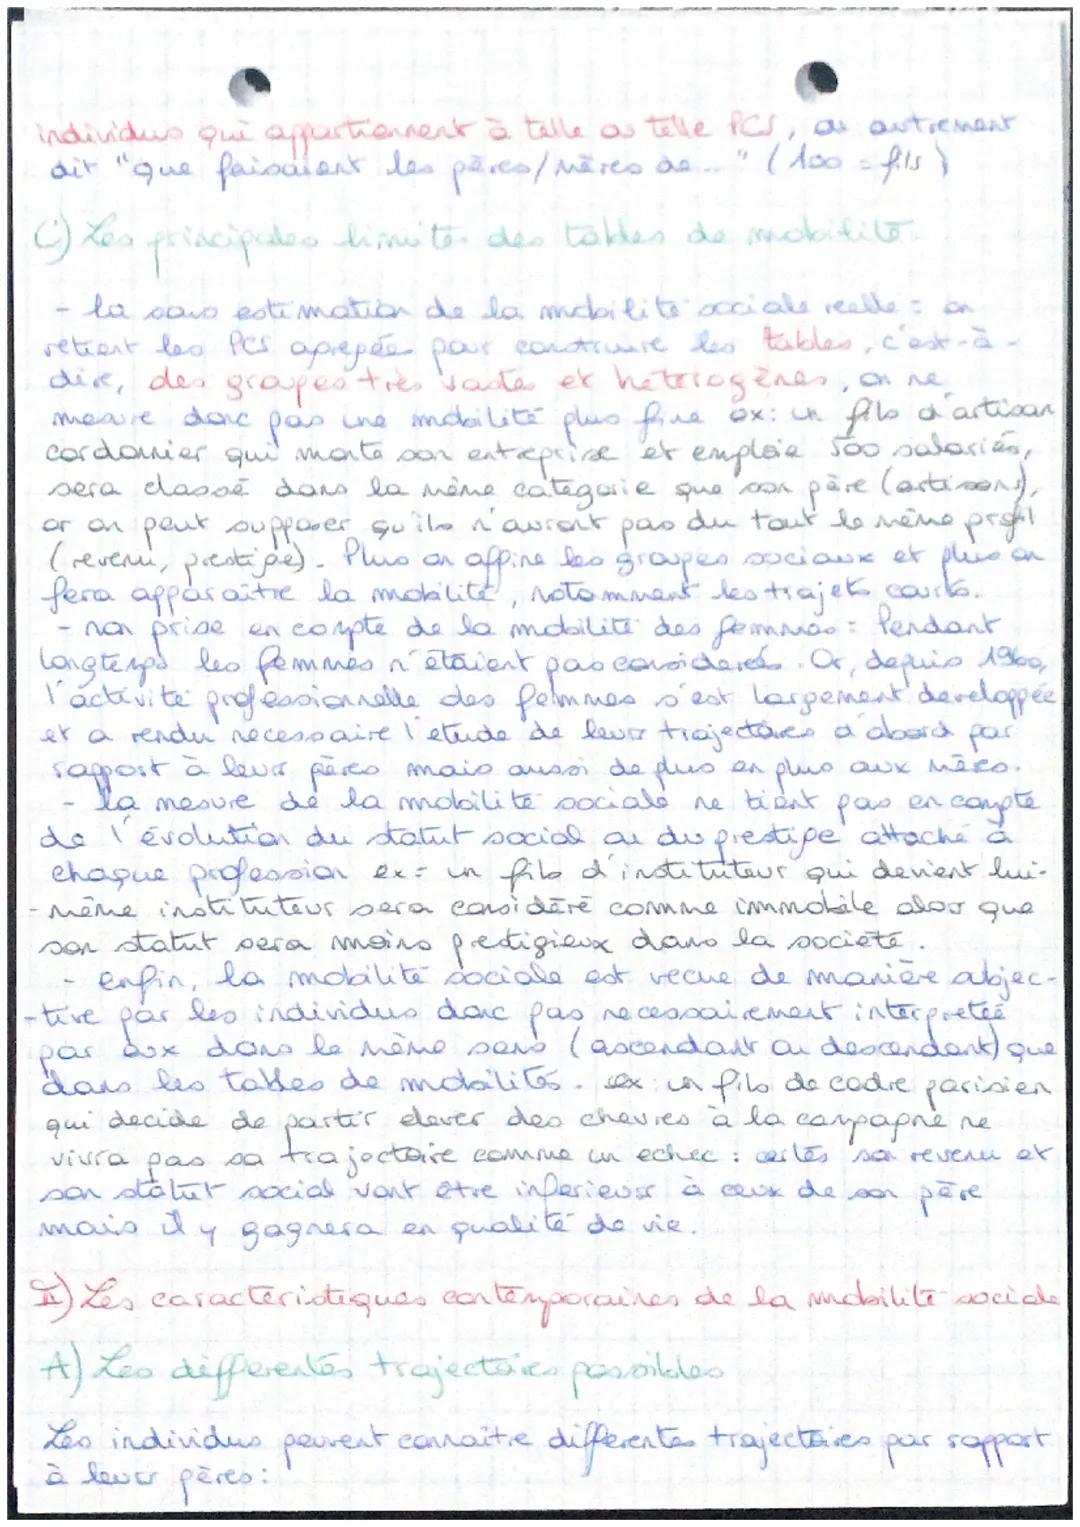 individus qui appartiennent à telle ou telle PCS, ou autrement
dit "que faisaient les pères/mères de..." (100 = fils)
C) Les principales limites des tables de mobilité.
- la sous estimation de la mobilité sociale réelle : on
retient les PCS agrégées pour construire les tables, c'est-à-
dire, des groupes très vastes et hétérogènes, on ne
mesure donc pas une mobilité plus fine ex: un fils d'artisan
cordonnier qui monte son entreprise et emploie 500 salariés,
sera classé dans la même catégorie que son père (artisans),
or on peut supposer qu'ils n'auront pas du tout le même profil
(revenu, prestige). Plus on affine les groupes sociaux et plus on
fera apparaître la mobilité, notamment les trajets courts.
- non prise en compte de la mobilité des femmes : Pendant
longtemps les femmes n'étaient pas considérées. Or, depuis 1960,
l'activité professionnelle des femmes s'est largement développée
et a rendu nécessaire l'étude de leurs trajectoires d'abord par
rapport à leurs pères mais aussi de plus en plus aux mères.
- la mesure de la mobilité sociale ne tient pas en compte
de l'évolution du statut social ou du prestige attaché à
chaque profession ex: un fils d'instituteur qui devient lui-
-même instituteur sera considéré comme immobile alors que
son statut sera moins prestigieux dans la société.
- enfin, la mobilité sociale est vécue de manière subjec-
-tive par les individus donc pas nécessairement interprétée
par eux dans le même sens (ascendant ou descendant) que
dans les tables de mobilités. ex: un fils de cadre parisien
qui décide de partir élever des chèvres à la campagne ne
vivra pas sa trajectoire comme un échec : certes son revenu et
son statut social vont être inférieurs à ceux de son père
mais il y gagnera en qualité de vie.
II) Les caractéristiques contemporaines de la mobilité sociale
A) Les différentes trajectoires possibles
Les individus peuvent connaître différentes trajectoires par rapport
à leurs pères :